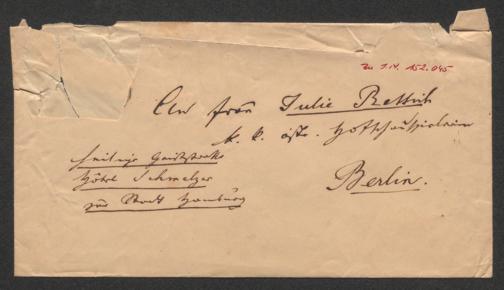 Zu I.N. 152.045
An Frau Julie Rettich
k. k. östr. Hofschauspielerin
Heilige Geiststraße
Hôtel Schmelzer
zur Stadt Hamburg
Berlin.